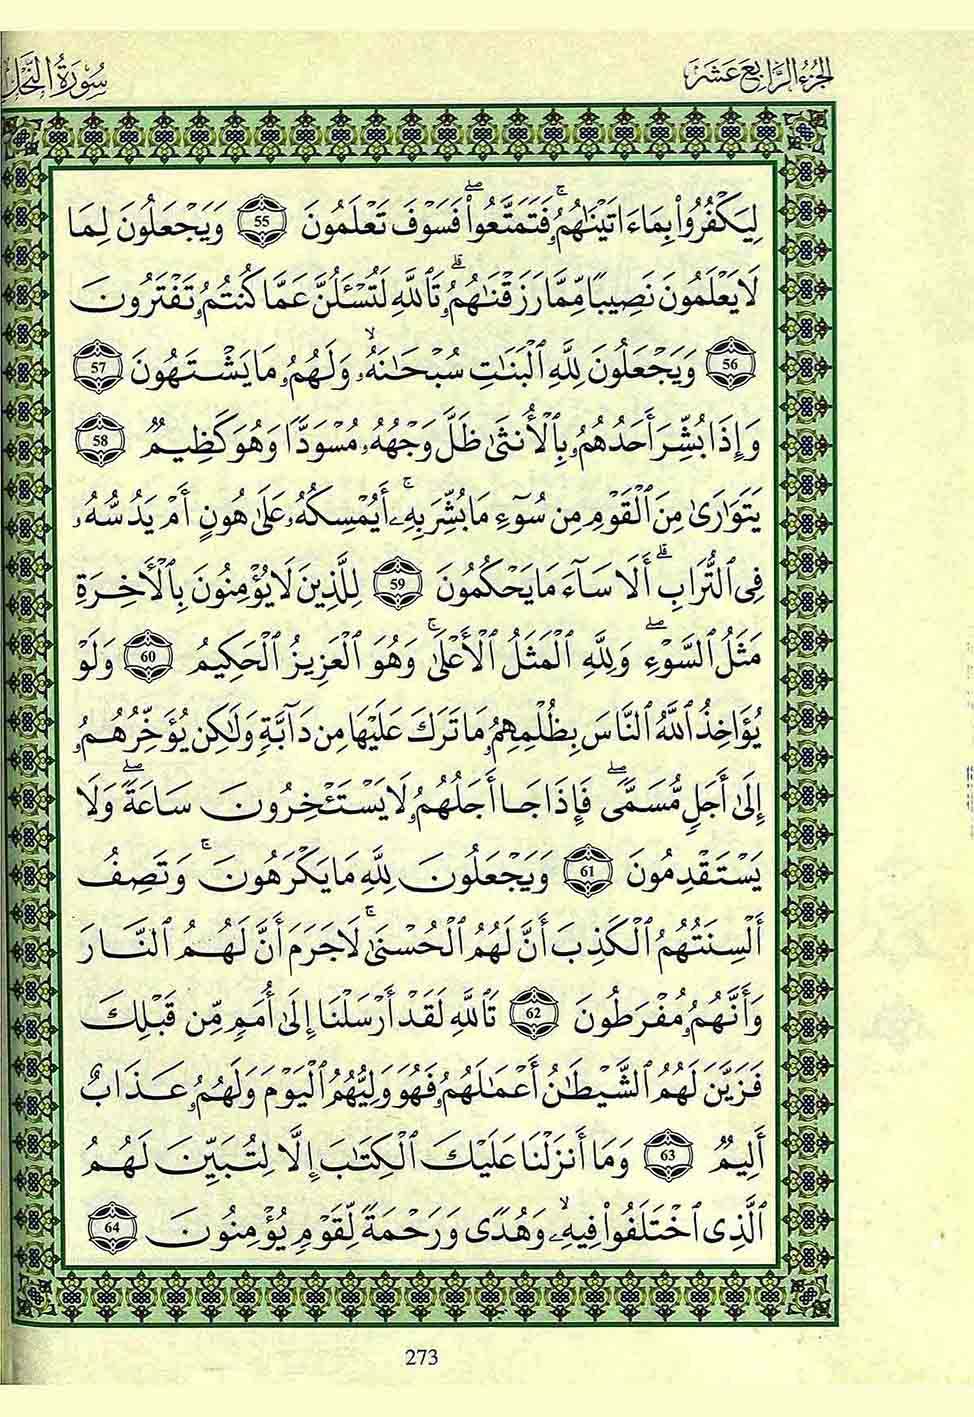 الجزء الرابع عشر
سورة النحل
لِيَكْفُرُوا۟ بِمَآ ءَاتَيْنَٰهُمُۥ ۚ فَتَمَتَّعُوا۟ ۖ فَسَوْفَ تَعْلَمُونَ 55 وَيَجْعَلُونَ لِمَا
لَا يَعْلَمُونَ نَصِيبًا مِّمَّا رَزَقْنَٰهُمُۥ ۗ تَٱللَّهِ لَتُسْـَٔلُنَّ عَمَّا كُنتُمُۥ تَفْتَرُونَ
56 وَيَجْعَلُونَ لِلَّهِ ٱلْبَنَٰتِ سُبْحَٰنَهُۥ ۙ وَلَهُمُۥ مَا يَشْتَهُونَ 57
وَإِذَا بُشِّرَ أَحَدُهُمُۥ بِٱلْأُنثَىٰ ظَلَّ وَجْهُهُۥ مُسْوَدًّا وَهُوَ كَظِيمٌ 58
يَتَوَٰرَىٰ مِنَ ٱلْقَوْمِ مِن سُوٓءِ مَا بُشِّرَ بِهِۦٓ ۚ أَيُمْسِكُهُۥ عَلَىٰ هُونٍ أَمْ يَدُسُّهُۥ
فِى ٱلتُّرَابِ ۗ أَلَا سَآءَ مَا يَحْكُمُونَ 59 لِلَّذِينَ لَا يُؤْمِنُونَ بِٱلْءَاخِرَةِ
مَثَلُ ٱلسَّوْءِ ۖ وَلِلَّهِ ٱلْمَثَلُ ٱلْأَعْلَىٰ ۚ وَهُوَ ٱلْعَزِيزُ ٱلْحَكِيمُ 60 وَلَوْ
يُؤَاخِذُ ٱللَّهُ ٱلنَّاسَ بِظُلْمِهِمُۥ مَا تَرَكَ عَلَيْهَا مِن دَآبَّةٍ وَلَٰكِن يُؤَخِّرُهُمُۥ
إِلَىٰٓ أَجَلٍ مُّسَمًّى ۖ فَإِذَا جَا أَجَلُهُمُۥ لَا يَسْتَـْٔخِرُونَ سَاعَةً ۖ وَلَا
يَسْتَقْدِمُونَ 61 وَيَجْعَلُونَ لِلَّهِ مَا يَكْرَهُونَ ۚ وَتَصِفُ
أَلْسِنَتُهُمُ ٱلْكَذِبَ أَنَّ لَهُمُ ٱلْحُسْنَىٰ ۚ لَا جَرَمَ أَنَّ لَهُمُ ٱلنَّارَ
وَأَنَّهُمُۥ مُفْرَطُونَ 62 تَٱللَّهِ لَقَدْ أَرْسَلْنَا إِلَىٰ أُمَمٍ مِّن قَبْلِكَ
فَزَيَّنَ لَهُمُ ٱلشَّيْطَٰنُ أَعْمَٰلَهُمُۥ فَهُوَ وَلِيُّهُمُ ٱلْيَوْمَ وَلَهُمُۥ عَذَابٌ
أَلِيمٌ 63 وَمَا أَنزَلْنَا عَلَيْكَ ٱلْكِتَٰبَ إِلَّا لِتُبَيِّنَ لَهُمُ
ٱلَّذِى ٱخْتَلَفُوا۟ فِيهِۦ ۙ وَهُدًى وَرَحْمَةً لِّقَوْمٍ يُؤْمِنُونَ 64
273